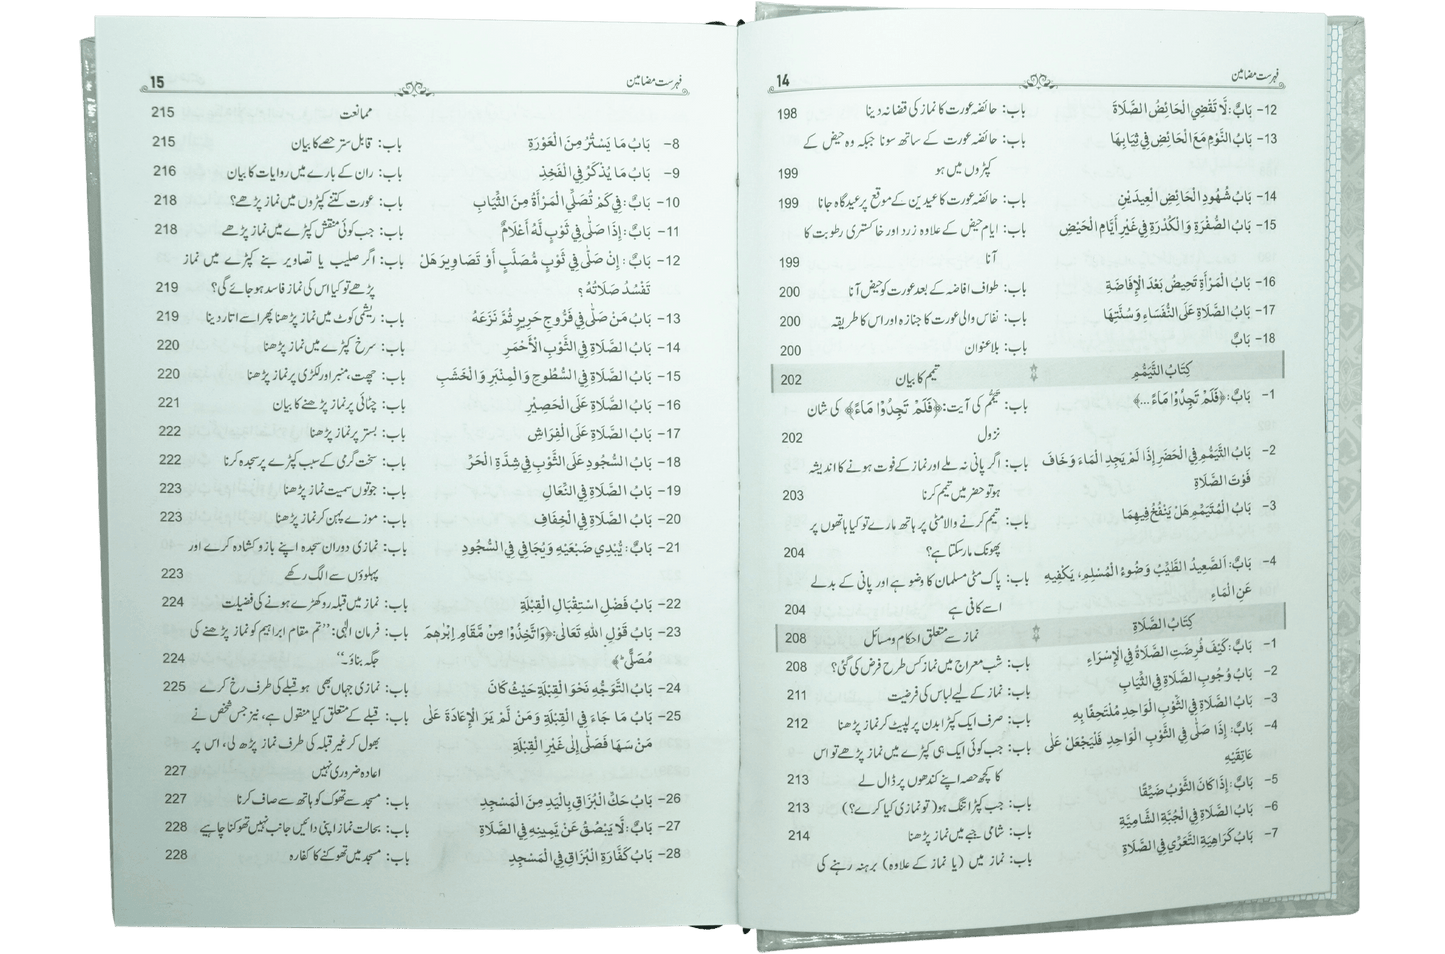 14 فہرست مضامین
12- بَابٌ: لَا تَقْضِي الْحَائِضُ الصَّلَاةَ باب: حائضہ عورت کا نماز کی قضا نہ دینا 198
13- بَابُ النَّوْمِ مَعَ الْحَائِضِ فِي ثِيَابِهَا باب: حائضہ عورت کے ساتھ سونا جبکہ وہ حیض کے
کپڑوں میں ہو 199
14- بَابُ شُهُودِ الْحَائِضِ الْعِيدَيْنِ باب: حائضہ عورت کا عیدین کے موقع پر عیدگاہ جانا 199
15- بَابُ الصُّفْرَةِ وَالْكُدْرَةِ فِي غَيْرِ أَيَّامِ الْحَيْضِ باب: ایام حیض کے علاوہ زرد اور خاکستری رطوبت کا
آنا 199
16- بَابُ الْمَرْأَةِ تَحِيضُ بَعْدَ الْإِفَاضَةِ باب: طواف افاضہ کے بعد عورت کو حیض آنا 200
17- بَابُ الصَّلَاةِ عَلَى النُّفَسَاءِ وَسُنَّتِهَا باب: نفاس والی عورت کا جنازہ اور اس کا طریقہ 200
18- بَابٌ باب: بلاعنوان 200
كِتَابُ التَّيَمُّمِ تیمم کا بیان 202
1- بَابٌ: ﴿فَلَمْ تَجِدُوْا مَاءً ...﴾ باب: تیمّم کی آیت: ﴿فَلَمْ تَجِدُوْا مَاءً﴾ کی شان
نزول 202
2- بَابُ التَّيَمُّمِ فِي الْحَضَرِ إِذَا لَمْ يَجِدِ الْمَاءَ وَخَافَ باب: اگر پانی نہ ملے اور نماز کے فوت ہونے کا اندیشہ
فَوْتَ الصَّلَاةِ ہو تو حضر میں تیمم کرنا 203
3- بَابُ الْمُتَيَمِّمِ هَلْ يَنْفُخُ فِيهِمَا باب: تیمم کرنے والا مٹی پر ہاتھ مارے تو کیا ہاتھوں پر
پھونک مار سکتا ہے؟ 204
4- بَابٌ: اَلصَّعِيدُ الطَّيِّبُ وَضُوءُ الْمُسْلِمِ، يَكْفِيهِ باب: پاک مٹی مسلمان کا وضو ہے اور پانی کے بدلے
عَنِ الْمَاءِ اسے کافی ہے 204
كِتَابُ الصَّلَاةِ نماز سے متعلق احکام و مسائل 208
1- بَابٌ: كَيْفَ فُرِضَتِ الصَّلَاةُ فِي الْإِسْرَاءِ باب: شب معراج میں نماز کس طرح فرض کی گئی؟ 208
2- بَابُ وُجُوبِ الصَّلَاةِ فِي الثِّيَابِ باب: نماز کے لیے لباس کی فرضیت 211
3- بَابُ الصَّلَاةِ فِي الثَّوْبِ الْوَاحِدِ مُلْتَحِفًا بِهِ باب: صرف ایک کپڑا بدن پر لپیٹ کر نماز پڑھنا 212
4- بَابٌ: إِذَا صَلَّى فِي الثَّوْبِ الْوَاحِدِ فَلْيَجْعَلْ عَلَى باب: جب کوئی ایک ہی کپڑے میں نماز پڑھے تو اس
عَاتِقَيْهِ کا کچھ حصہ اپنے کندھوں پر ڈال لے 213
5- بَابٌ: إِذَا كَانَ الثَّوْبُ ضَيِّقًا باب: جب کپڑا تنگ ہو (تو نمازی کیا کرے؟) 213
6- بَابُ الصَّلَاةِ فِي الْجُبَّةِ الشَّامِيَّةِ باب: شامی جبے میں نماز پڑھنا 214
7- بَابُ كَرَاهِيَةِ التَّعَرِّي فِي الصَّلَاةِ باب: نماز میں (یا نماز کے علاوہ) برہنہ رہنے کی
15 فہرست مضامین
ممانعت 215
8- بَابُ مَا يَسْتُرُ مِنَ الْعَوْرَةِ باب: قابل ستر حصے کا بیان 215
9- بَابُ مَا يُذْكَرُ فِي الْفَخِذِ باب: ران کے بارے میں روایات کا بیان 216
10- بَابٌ: فِي كَمْ تُصَلِّي الْمَرْأَةُ مِنَ الثِّيَابِ باب: عورت کتنے کپڑوں میں نماز پڑھے؟ 218
11- بَابٌ: إِذَا صَلَّى فِي ثَوْبٍ لَهُ أَعْلَامٌ باب: جب کوئی منقش کپڑے میں نماز پڑھے 218
12- بَابٌ: إِنْ صَلَّى فِي ثَوْبٍ مُصَلَّبٍ أَوْ تَصَاوِيرَ هَلْ باب: اگر صلیب یا تصاویر بنے کپڑے میں نماز
تَفْسُدُ صَلَاتُهُ؟ پڑھے تو کیا اس کی نماز فاسد ہو جائے گی؟ 219
13- بَابُ مَنْ صَلَّى فِي فَرُّوجِ حَرِيرٍ ثُمَّ نَزَعَهُ باب: ریشمی کوٹ میں نماز پڑھنا پھر اسے اتار دینا 219
14- بَابُ الصَّلَاةِ فِي الثَّوْبِ الْأَحْمَرِ باب: سرخ کپڑے میں نماز پڑھنا 220
15- بَابُ الصَّلَاةِ فِي السُّطُوحِ وَالْمِنْبَرِ وَالْخَشَبِ باب: چھت، منبر اور لکڑی پر نماز پڑھنا 220
16- بَابُ الصَّلَاةِ عَلَى الْحَصِيرِ باب: چٹائی پر نماز پڑھنے کا بیان 221
17- بَابُ الصَّلَاةِ عَلَى الْفِرَاشِ باب: بستر پر نماز پڑھنا 222
18- بَابُ السُّجُودِ عَلَى الثَّوْبِ فِي شِدَّةِ الْحَرِّ باب: سخت گرمی کے سبب کپڑے پر سجدہ کرنا 222
19- بَابُ الصَّلَاةِ فِي النِّعَالِ باب: جوتوں سمیت نماز پڑھنا 223
20- بَابُ الصَّلَاةِ فِي الْخِفَافِ باب: موزے پہن کر نماز پڑھنا 223
21- بَابٌ: يُبْدِي ضَبْعَيْهِ وَيُجَافِي فِي السُّجُودِ باب: نمازی دوران سجدہ اپنے بازو کشادہ کرے اور
پہلوؤں سے الگ رکھے 223
22- بَابُ فَضْلِ اسْتِقْبَالِ الْقِبْلَةِ باب: نماز میں قبلہ رو کھڑے ہونے کی فضیلت 224
23- بَابُ قَوْلِ اللهِ تَعَالَى: ﴿وَاتَّخِذُوْا مِنْ مَّقَامِ اِبْرٰهٖمَ باب: فرمان الٰہی: ’’تم مقام ابراہیم کو نماز پڑھنے کی
مُصَلًّى﴾ جگہ بناؤ۔‘‘ 224
24- بَابُ التَّوَجُّهِ نَحْوَ الْقِبْلَةِ حَيْثُ كَانَ باب: نمازی جہاں بھی ہو قبلے کی طرف رخ کرے 225
25- بَابُ مَا جَاءَ فِي الْقِبْلَةِ وَمَنْ لَمْ يَرَ الْإِعَادَةَ عَلَى باب: قبلے کے متعلق کیا منقول ہے، نیز جس شخص نے
مَنْ سَهَا فَصَلَّى إِلَى غَيْرِ الْقِبْلَةِ بھول کر غیر قبلہ کی طرف نماز پڑھ لی، اس پر
اعادہ ضروری نہیں 227
26- بَابُ حَكِّ الْبُزَاقِ بِالْيَدِ مِنَ الْمَسْجِدِ باب: مسجد سے تھوک کو ہاتھ سے صاف کرنا 227
27- بَابٌ: لَا يَبْصُقْ عَنْ يَمِينِهِ فِي الصَّلَاةِ باب: بحالت نماز اپنی دائیں جانب نہیں تھوکنا چاہیے 228
28- بَابُ كَفَّارَةِ الْبُزَاقِ فِي الْمَسْجِدِ باب: مسجد میں تھوکنے کا کفارہ 228